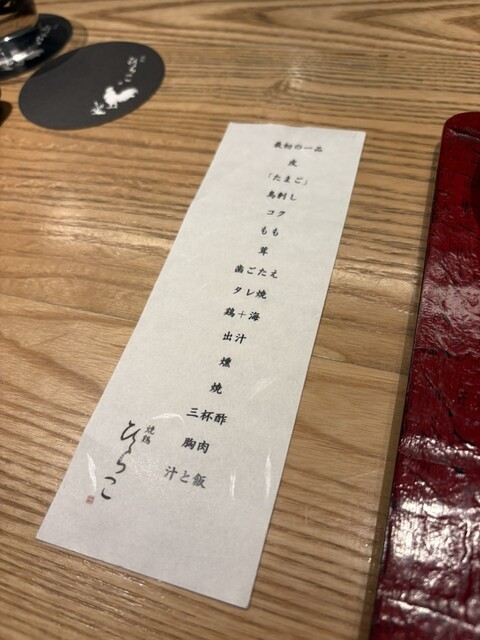 最初の一品
皮
「たまご」
鳥刺し
コク
もも
茸
歯ごたえ
タレ焼
鶏+海
出汁
燻
焼
三杯酢
胸肉
汁と飯
焼鶏
ひらこ